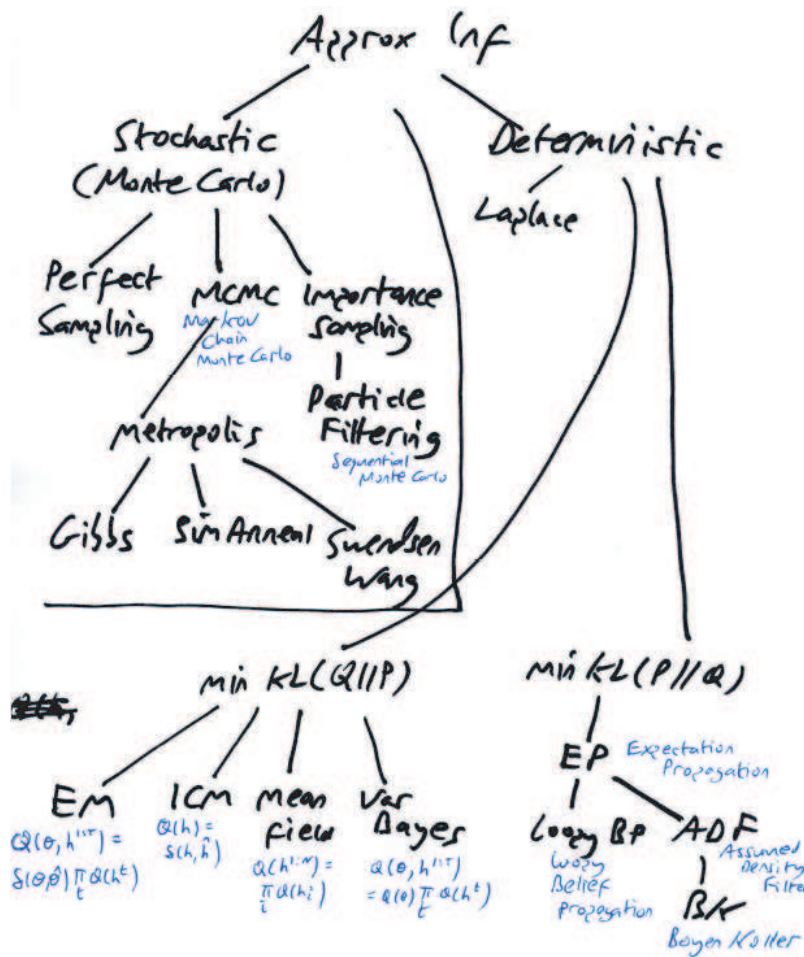 Approx Inf
Stochastic
(Monte Carlo)
Deterministic
Laplace
Perfect
Sampling
MCMC
Markov
Chain
Monte Carlo
Importance
Sampling
Particle
Filtering
Sequential
Monte Carlo
Metropolis
Gibbs
Sim Anneal
Swendsen
Wang
min KL(Q||P)
min KL(P||Q)
EM
Q(θ, h^{1:T}) =
δ(θ,θ̂) π_t Q(h^t)
ICM
Q(h) =
δ(h,ĥ)
Mean
Field
Q(h^{1:N}) =
π_i Q(h_i)
Var
Bayes
Q(θ, h^{1:T})
= Q(θ) π_t Q(h^t)
EP
Expectation
Propagation
Loopy BP
Loopy
Belief
Propagation
ADF
Assumed
Density
Filter
BK
Boyen Koller